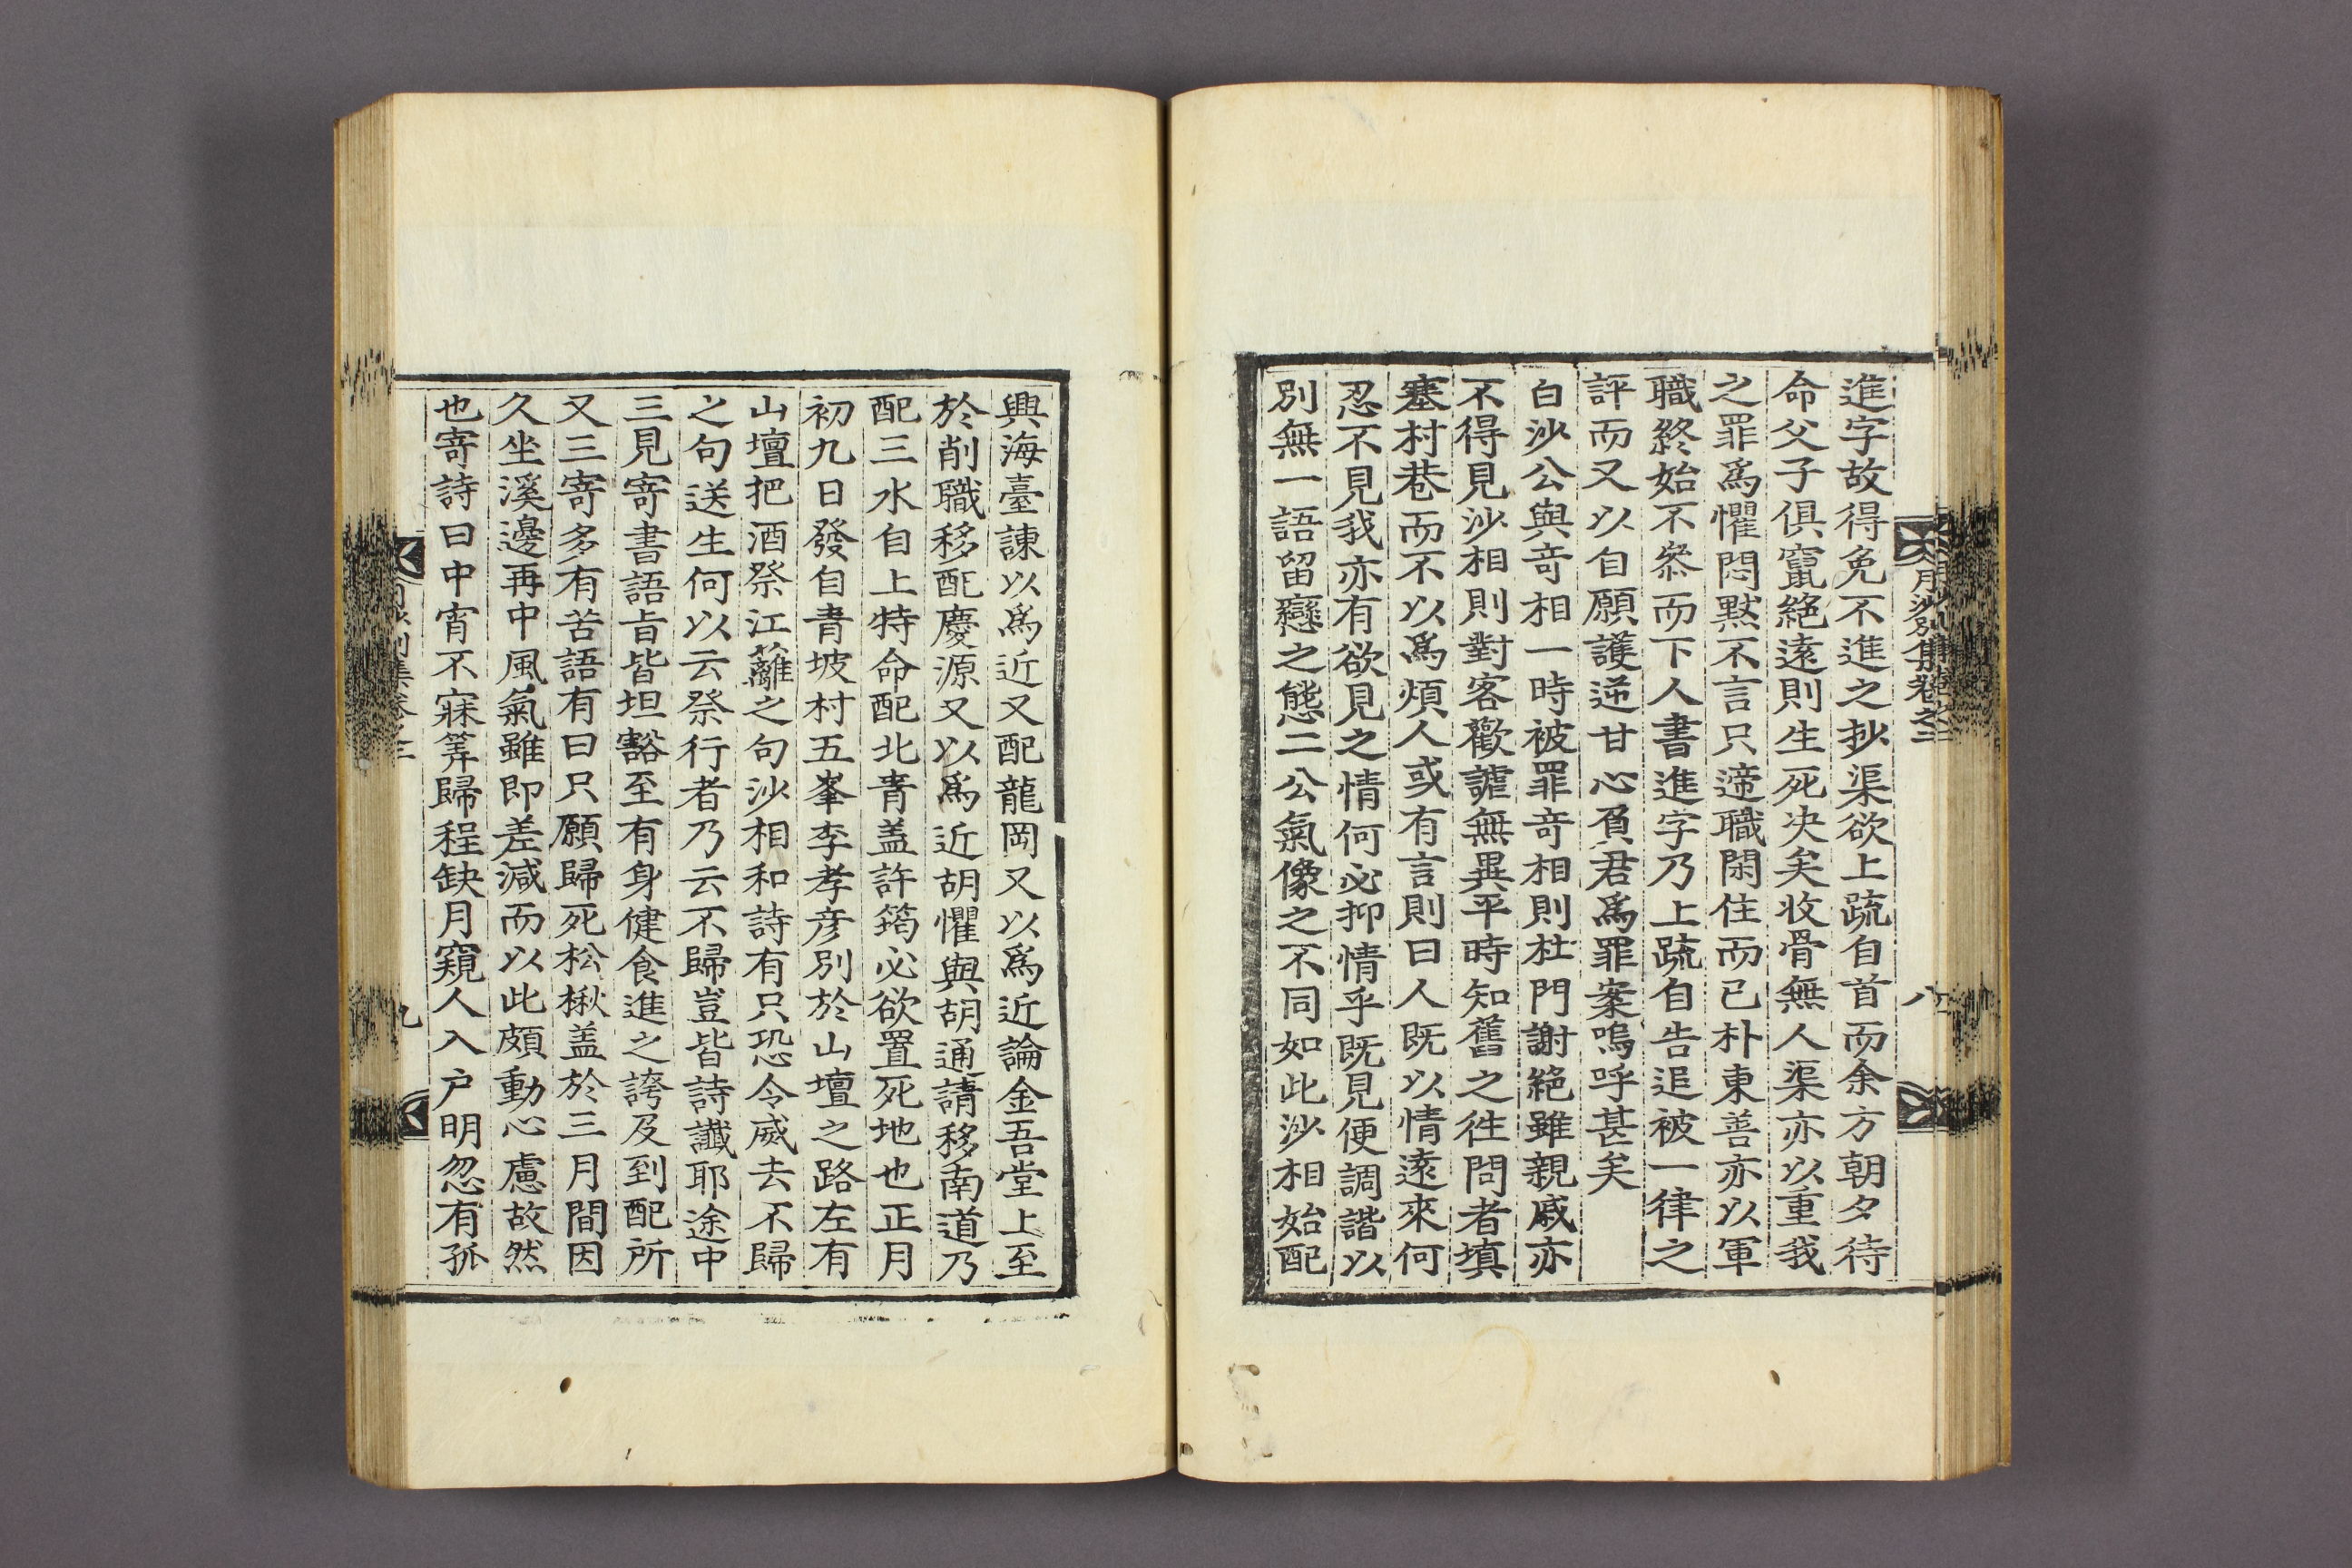 進字故得免不進之抄渠欲上疏自首而余方朝夕待
命父子俱竄絶遠則生死決矣收骨無人渠亦以重我
之罪爲懼悶默不言只遞職閑住而已朴東善亦以軍
職終始不叅而下人書進字乃上疏自告追被一律之
評而又以自願護逆甘心負君爲罪案嗚呼甚矣
白沙公與竒相一時被罪竒相則杜門謝絶雖親戚亦
不得見沙相則對客歡謔無異平時知舊之徃問者塡
塞村巷而不以爲煩人或有言則曰人既以情遠來何
忍不見我亦有欲見之情何必抑情乎既見便調諧以
別無一語留戀之態二公氣像之不同如此沙相始配
月沙別集卷之二
八
興海臺諫以爲近又配龍岡又以爲近論金吾堂上至
於削職移配慶源又以爲近胡懼與胡通請移南道乃
配三水自上特命配北靑盖許筠必欲置死地也正月
初九日發自靑坡村五峯李孝彦別於山壇之路左有
山壇把酒祭江蘺之句沙相和詩有只恐令威去不歸
之句送生何以云祭行者乃云不歸豈皆詩讖耶途中
三見寄書語旨皆坦豁至有身健食進之誇及到配所
又三寄多有苦語有曰只願歸死松楸盖於三月間因
久坐溪邊再中風氣雖即差減而以此頗動心慮故然
也寄詩曰中宵不寐筭歸程缺月窺人入户明忽有孤
九